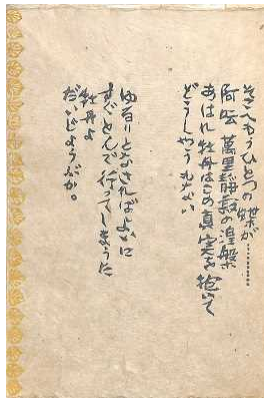 そこへもうひとつの蝶が…………
阿吽 萬里静寂の涅槃
あはれ牡丹はこの真実を抱いて
どうしやうもない
ゆるりとなさればよいに
すぐとんで行つてしまうに
牡丹よ
だいじようぶか。